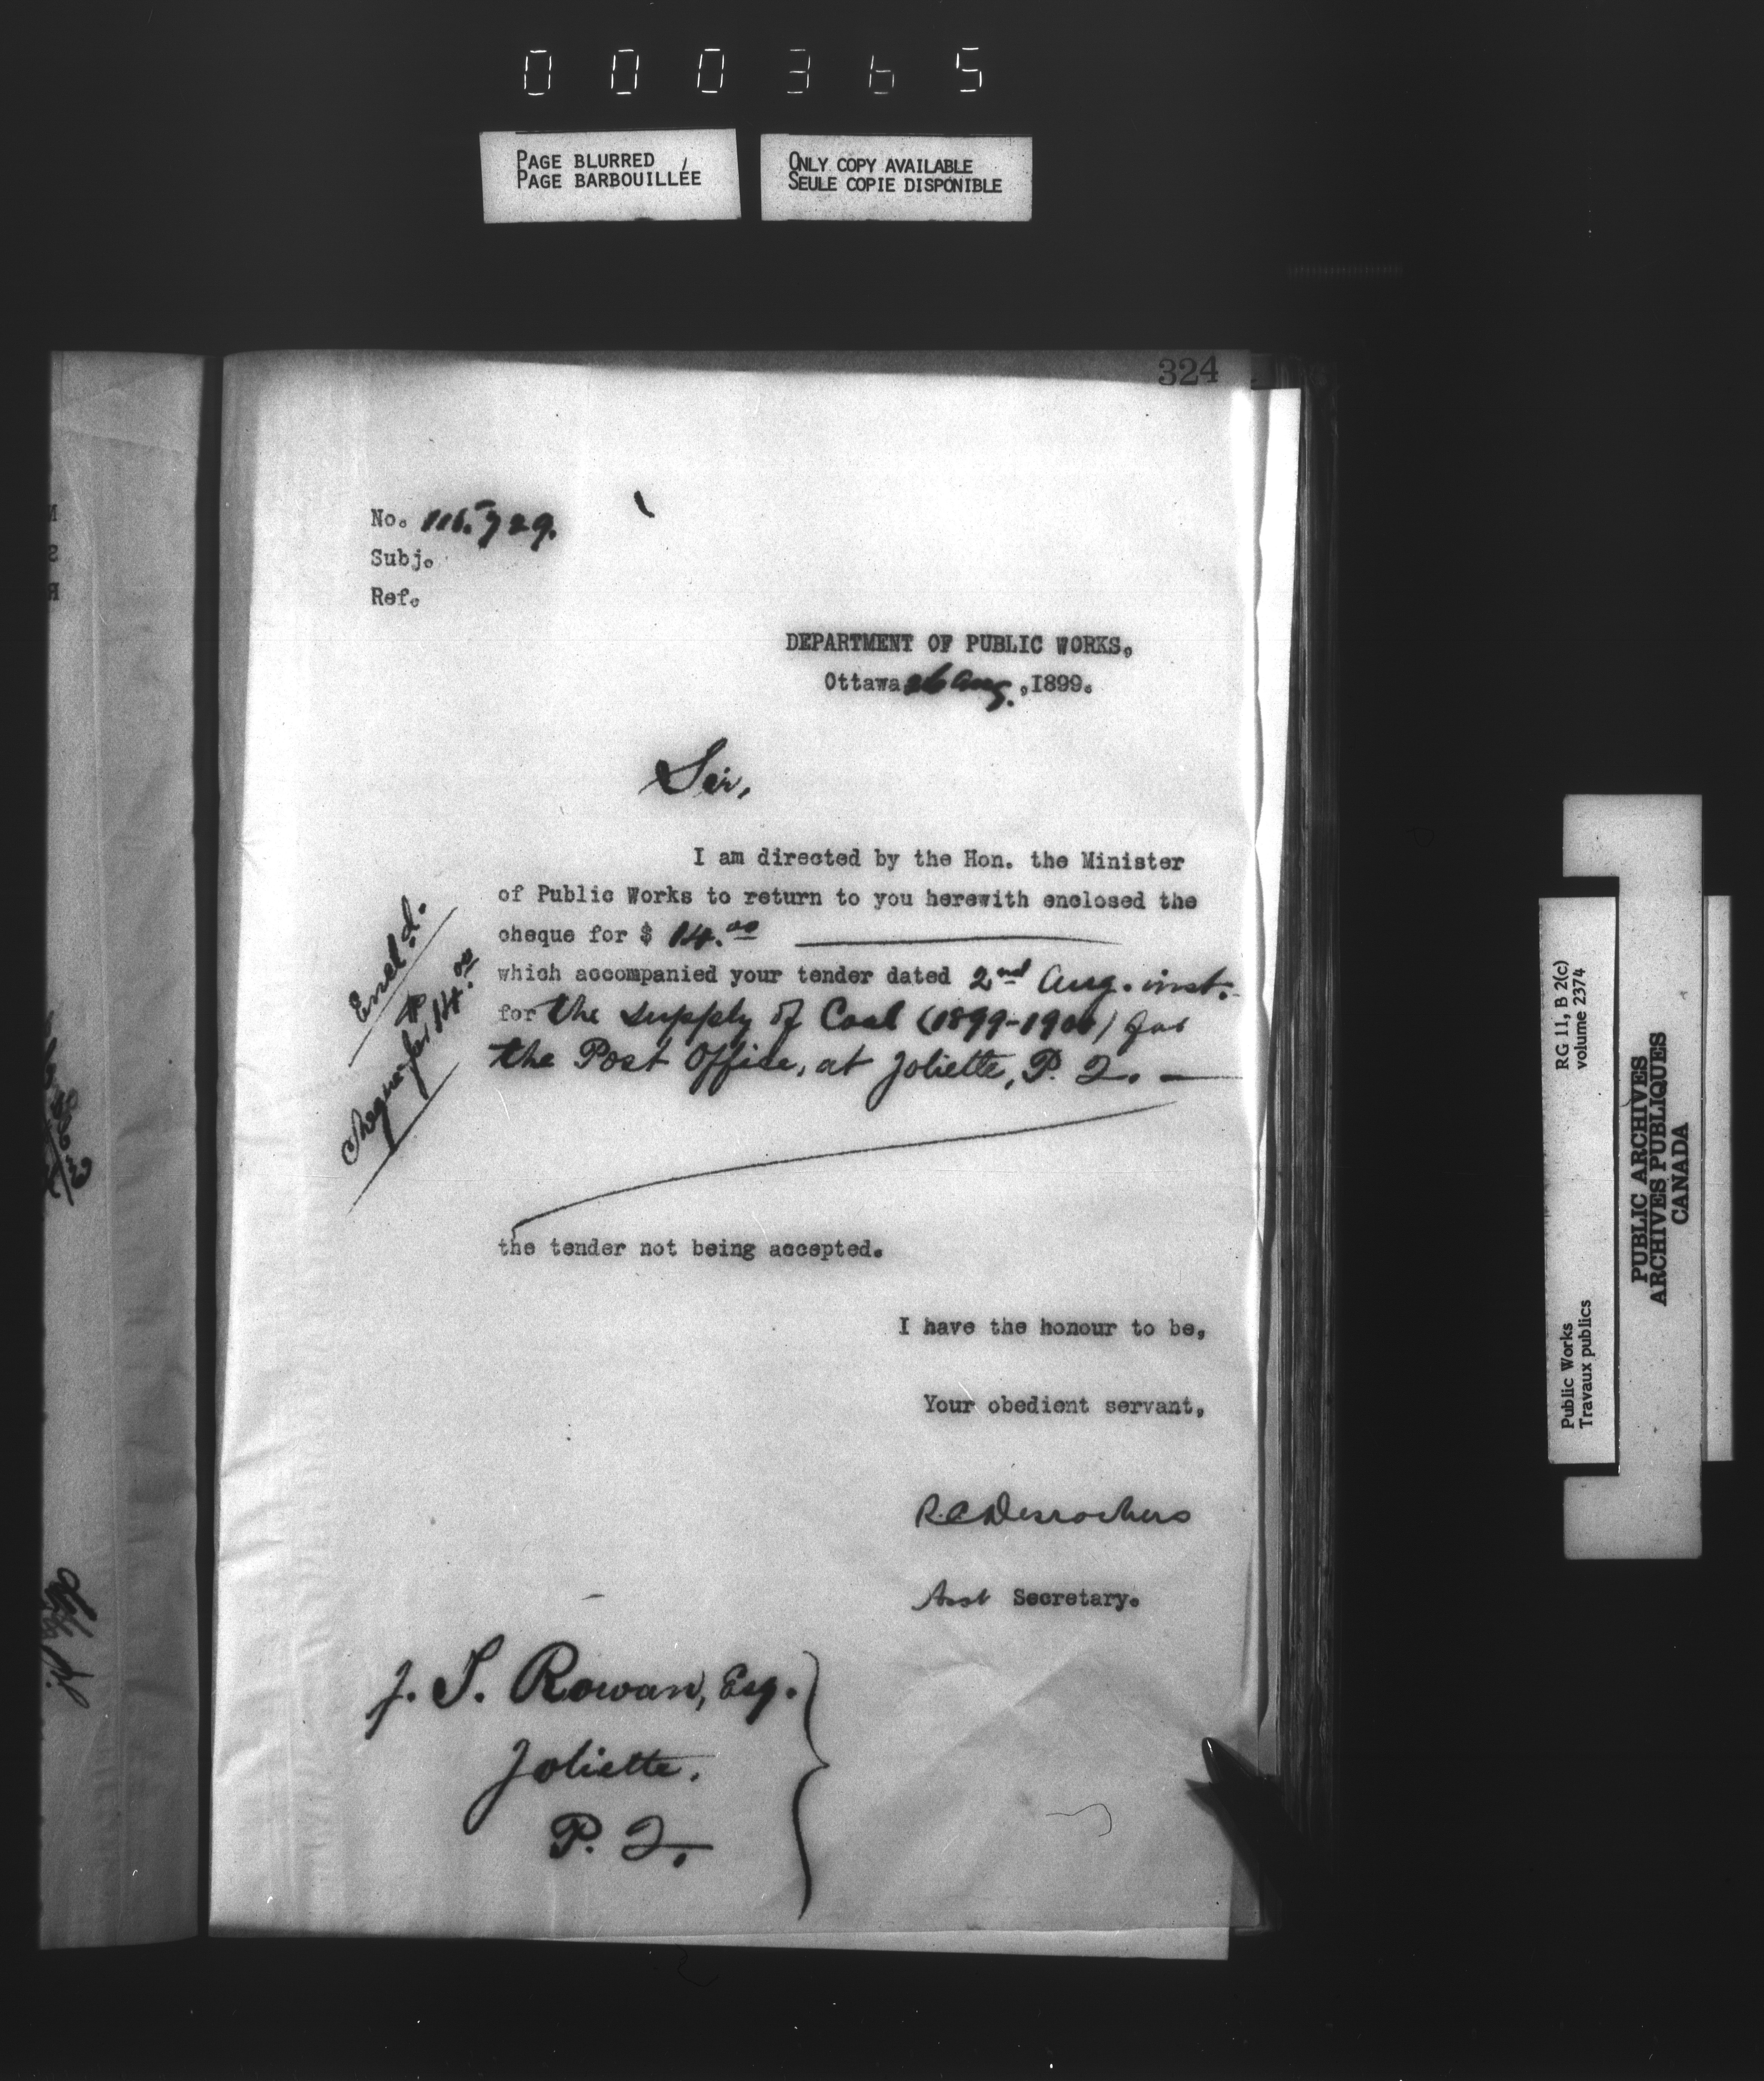 000365
PAGE BLURRED
PAGE BARBOUILLÉE
ONLY COPY AVAILABLE
SEULE COPIE DISPONIBLE
324
No. 116.729.
Subj.
Ref.
DEPARTMENT OF PUBLIC WORKS.
Ottawa 26 Aug. ,1899.
Sir,
I am directed by the Hon. the Minister
of Public Works to return to you herewith enclosed the
cheque for $ 14.00
which accompanied your tender dated 2nd Aug. inst.
for the supply of Coal (1899-1900) for
the Post Office, at Joliette, P. Q. —
the tender not being accepted.
Encl d.
Cheque for $14.00
I have the honour to be,
Your obedient servant,
R.C Desrochers
Asst Secretary.
J. S. Rowan, Esq.
Joliette.
P. Q.
RG 11, B 2(c)
volume 2374
Public Works
Travaux publics
PUBLIC ARCHIVES
ARCHIVES PUBLIQUES
CANADA